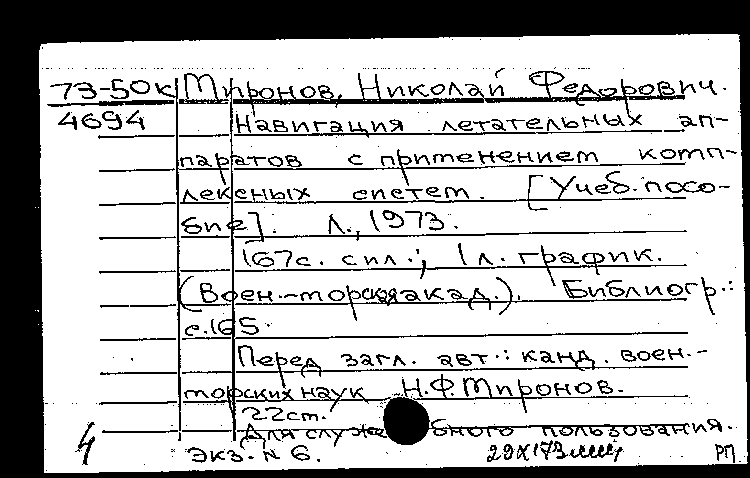 73-50к Миронов, Николай Федорович.
4694 Навигация летательных ап-
паратов с применением комп-
лексных систем. [Учеб. посо-
бие]. Л., 1973.
167с. с ил.; 1 л. график.
(Воен.-морская акад.). Библиогр.:
с.165.
Перед загл. авт.: канд. воен.-
морских наук Н.Ф. Миронов.
22см.
Для служебного пользования.
4 Экз. N 6. РП